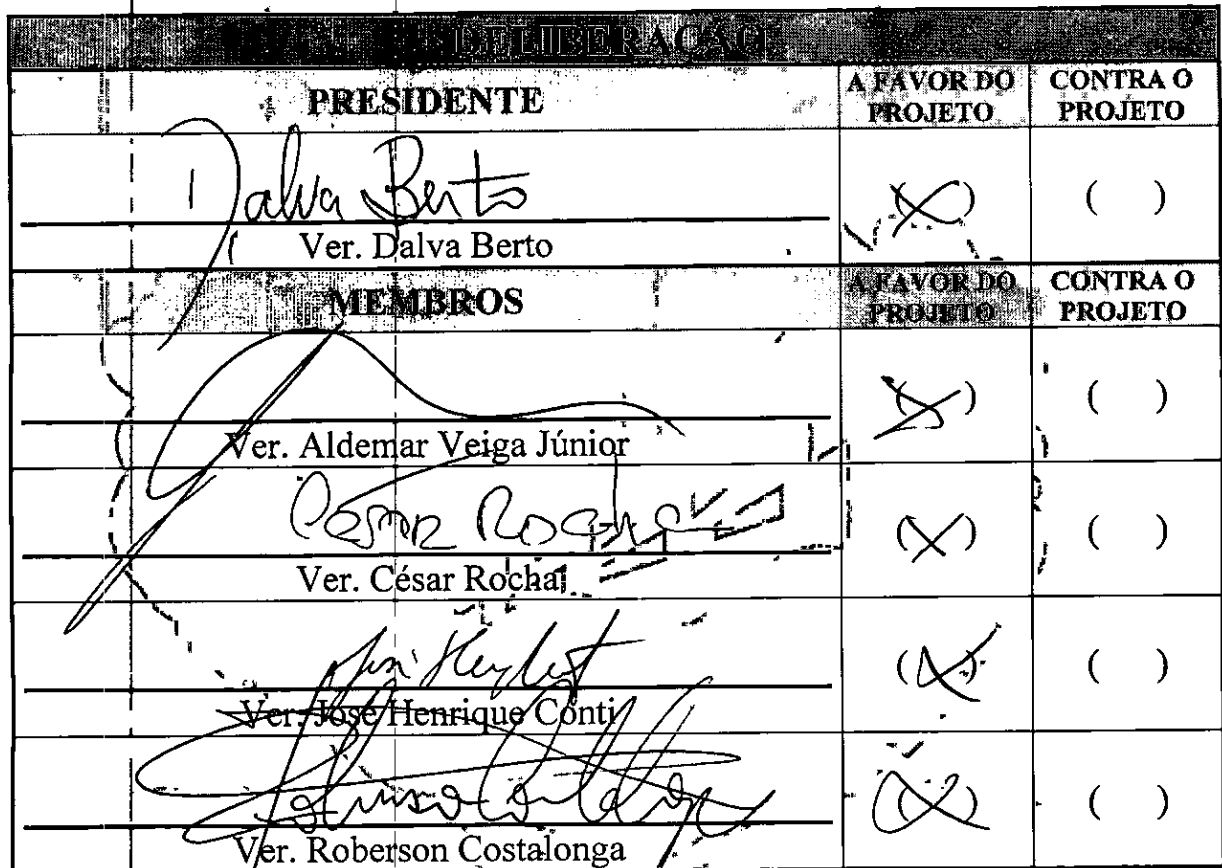 DELIBERAÇÃO
PRESIDENTE A FAVOR DO PROJETO CONTRA O PROJETO
Dalva Berto (X) ( )
Ver. Dalva Berto
MEMBROS A FAVOR DO PROJETO CONTRA O PROJETO
(X) ( )
Ver. Aldemar Veiga Júnior
César Rocha (X) ( )
Ver. César Rocha
(X) ( )
Ver. José Henrique Conti
(X) ( )
Ver. Roberson Costalonga